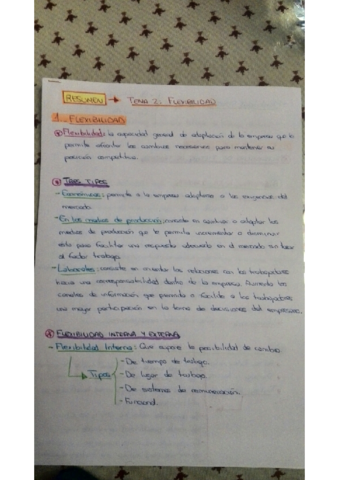 RESUMEN → TEMA 2: FLEXIBILIDAD
1. FLEXIBILIDAD
Flexibilidad: la capacidad general de adaptación de la empresa que le
permite afrontar los cambios necesarios para mantener su
posición competitiva.
TRES TIPOS
- Económicas: permite a la empresa adaptarse a las exigencias del
mercado.
- En los medios de producción: consiste en sustituir o adaptar los
medios de producción que le permita incrementar o disminuir
esta para facilitar una respuesta adecuada en el mercado sin tocar
al factor trabajo.
- Laborales: consiste en orientar las relaciones con los trabajadores
hacia una corresponsabilidad dentro de la empresa. Aumenta los
canales de información que permita o facilite a los trabajadores
una mayor participación en la toma de decisiones del empresario.
FLEXIBILIDAD INTERNA Y EXTERNA
- Flexibilidad Interna: Que supone la posibilidad de cambio
Tipos - De tiempo de trabajo.
- De lugar de trabajo.
- De sistemas de remuneración.
- Funcional.